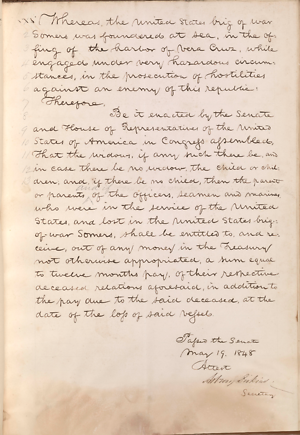 Whereas, the United States brig of war
Somers was foundered at sea, in the of-
fing of the harbor of Vera Cruz, while
engaged under very hazardous circum-
stances, in the prosecution of hostilities
against an enemy of this republic:
Therefore,
Be it enacted by the Senate
and House of Representatives of the United
States of America in Congress assembled,
That the widows, if any such there be, and
in case there be no widow, the child or chil-
dren, and if there be no child, then the parent
or parents, of the officers, seamen and marines
who were in the service of the United
States, and lost in the United States brig
of war Somers, shall be entitled to, and re-
ceive, out of any money in the Treasury
not otherwise appropriated, a sum equal
to twelve months pay, of their respective
deceased relations aforesaid, in addition to
the pay due to the said deceased, at the
date of the loss of said vessel.
Passed the Senate
May 19, 1848
Attest
Secretary